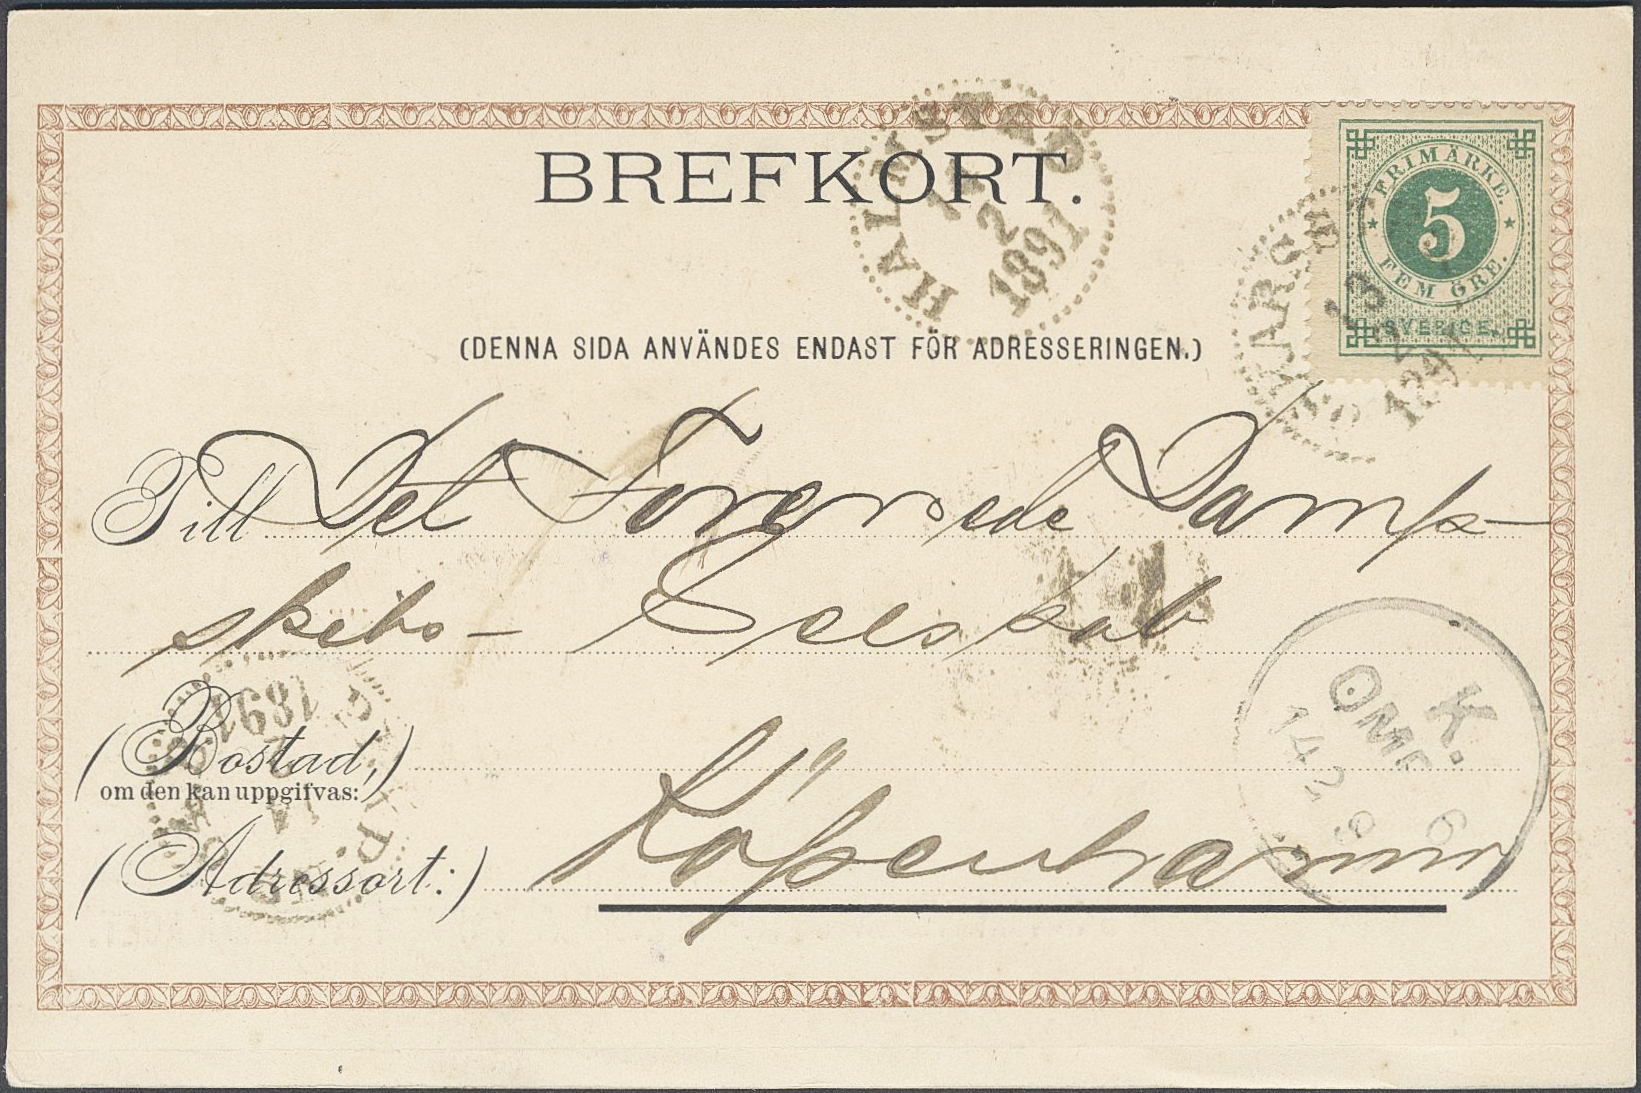 BREFKORT.
HALMSTAD
2
1891
FRIMÄRKE.
5
FEM ÖRE.
SVERIGE.
13
2
1891
(DENNA SIDA ANVÄNDES ENDAST FÖR ADRESSERINGEN.)
Till Det Forenede Damp-
skibs- Selskab
(Bostad,)
om den kan uppgifvas:
1891
K.
OMB 6
14 2 9
(Adressort:) Köpenhamn